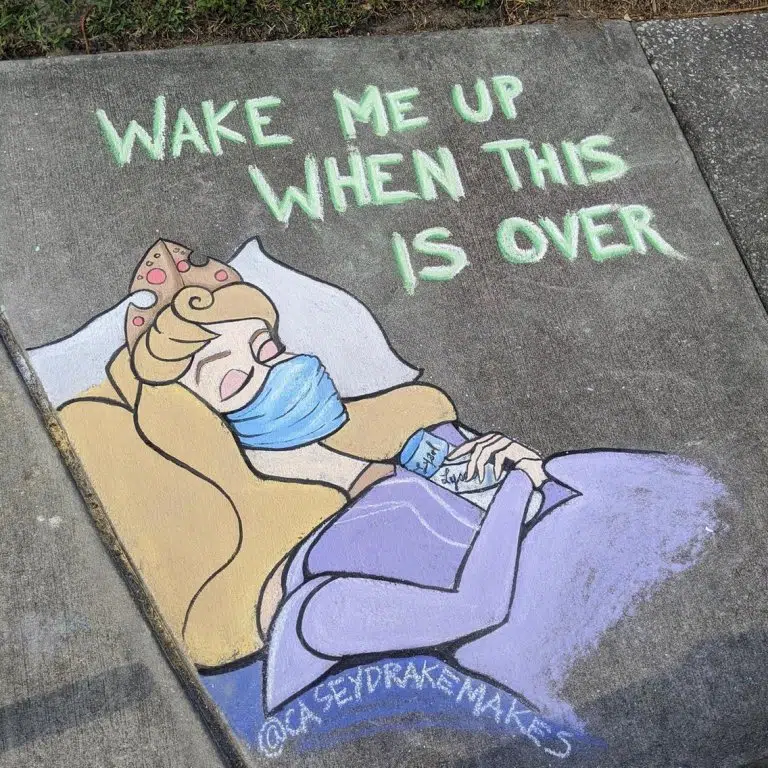 WAKE ME UP
WHEN THIS
IS OVER
Lysol
Lys
@CASEYDRAKEMAKES